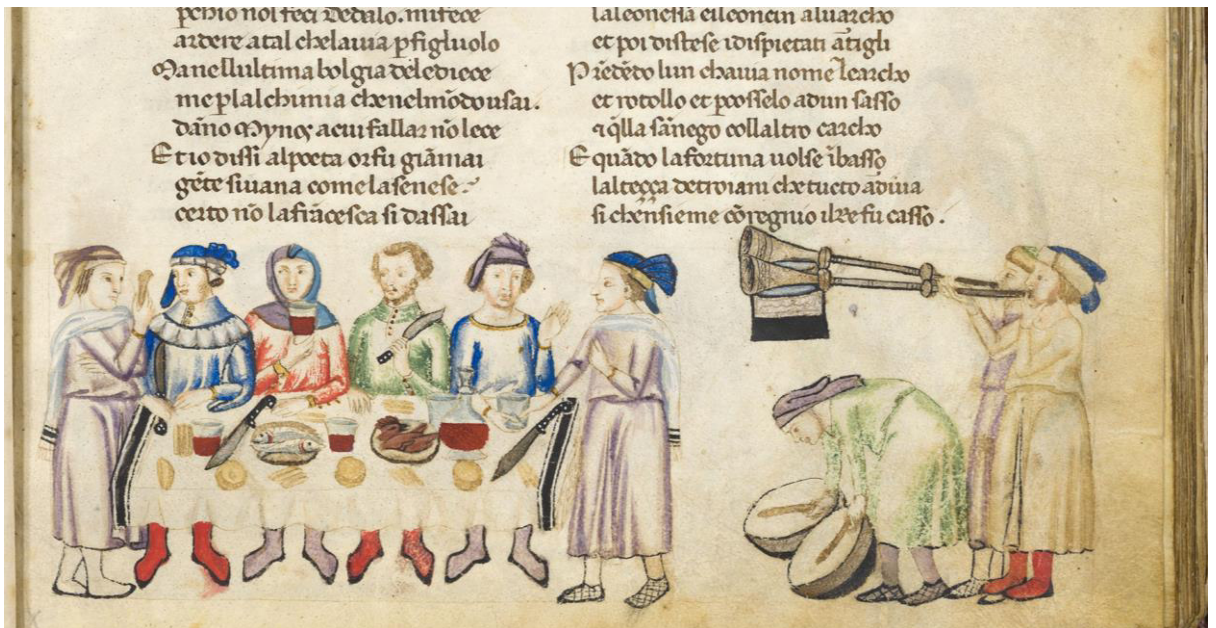 perchio nol feci Dedalo. mi fece
ardere atal chelauia p figluolo
Ma nellultima bolgia dele diece
me p lalchimia che nel mōdo usai.
dāno Mynos acui fallar nō lece
Et io dissi alpoeta or fu giāmai
gēte si uana come la senese.
certo nō la frācesca si dassai
la leonessa eileoncin aluarcho
et poi distese i dispietati artigli
Prēdēdo lun chauia nome learcho
et rotollo et pcosselo adun sasso
⁊ qlla sānego collaltro carcho
E quādo la fortuna uolse ībasso
lalteçça de troiani che tucto ardiua
si chensieme col regno il Re fu casso.